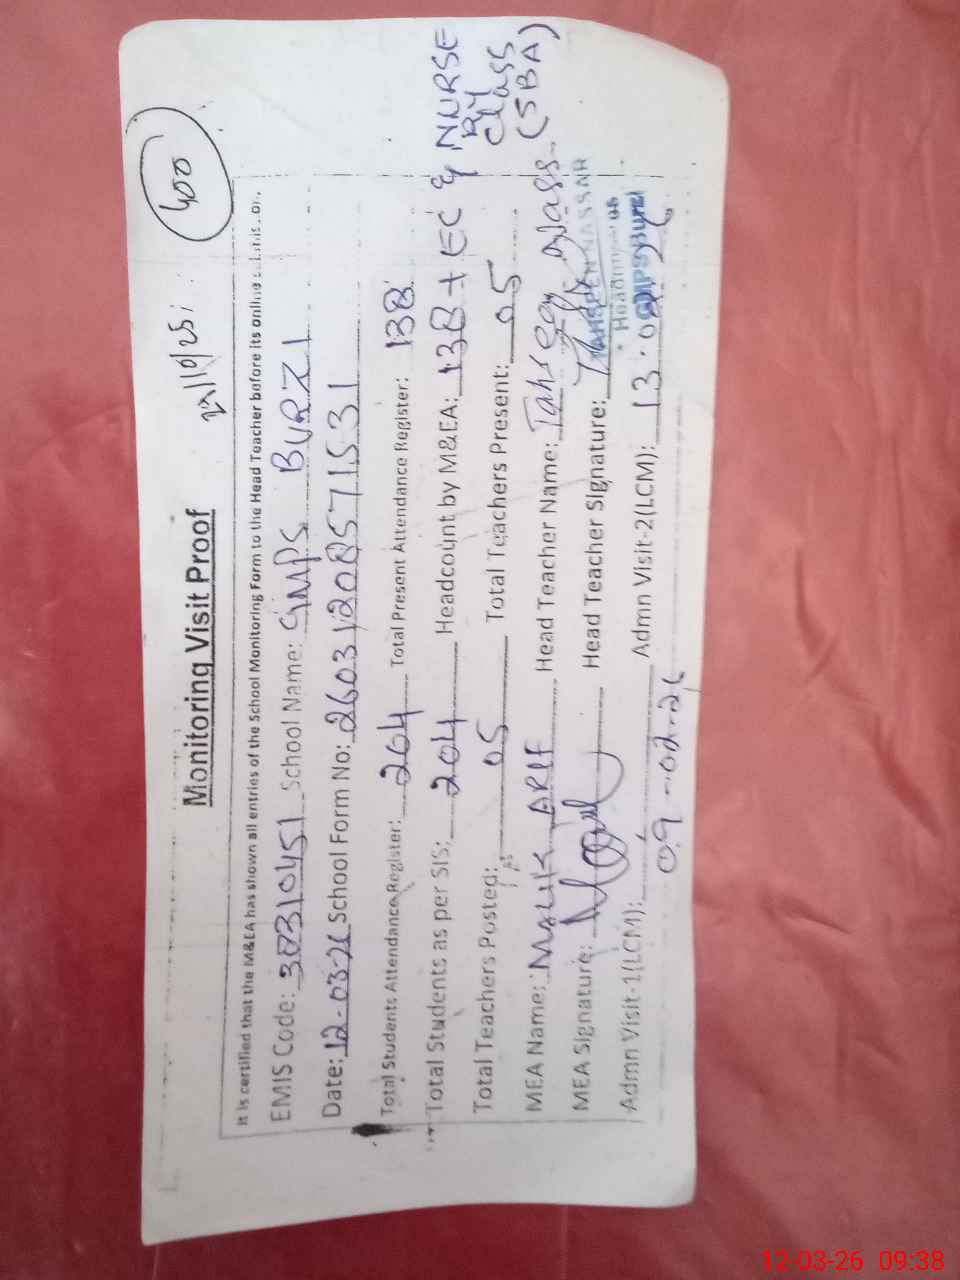 400
Monitoring Visit Proof
It is certified that the M&EA has shown all entries of the School Monitoring Form to the Head Teacher before its online
EMIS Code: 37310451 School Name: GMPS BURZI
Date: 12-03-26 School Form No:
Total Students Attendance Register: 204 Total Present Attendance Register: 138
Total Students as per SIS: 204 Headcount by M&EA: 138 + EC & NNRSE
RY
Class
(SBA)
Total Teachers Posted: 05 Total Teachers Present: 05
MEA Name: Malik ARIF Head Teacher Name:
MEA Signature: Head Teacher Signature:
Admn Visit-1(LCM): 09-02-26 Admn Visit-2(LCM):
12-03-26 09:38